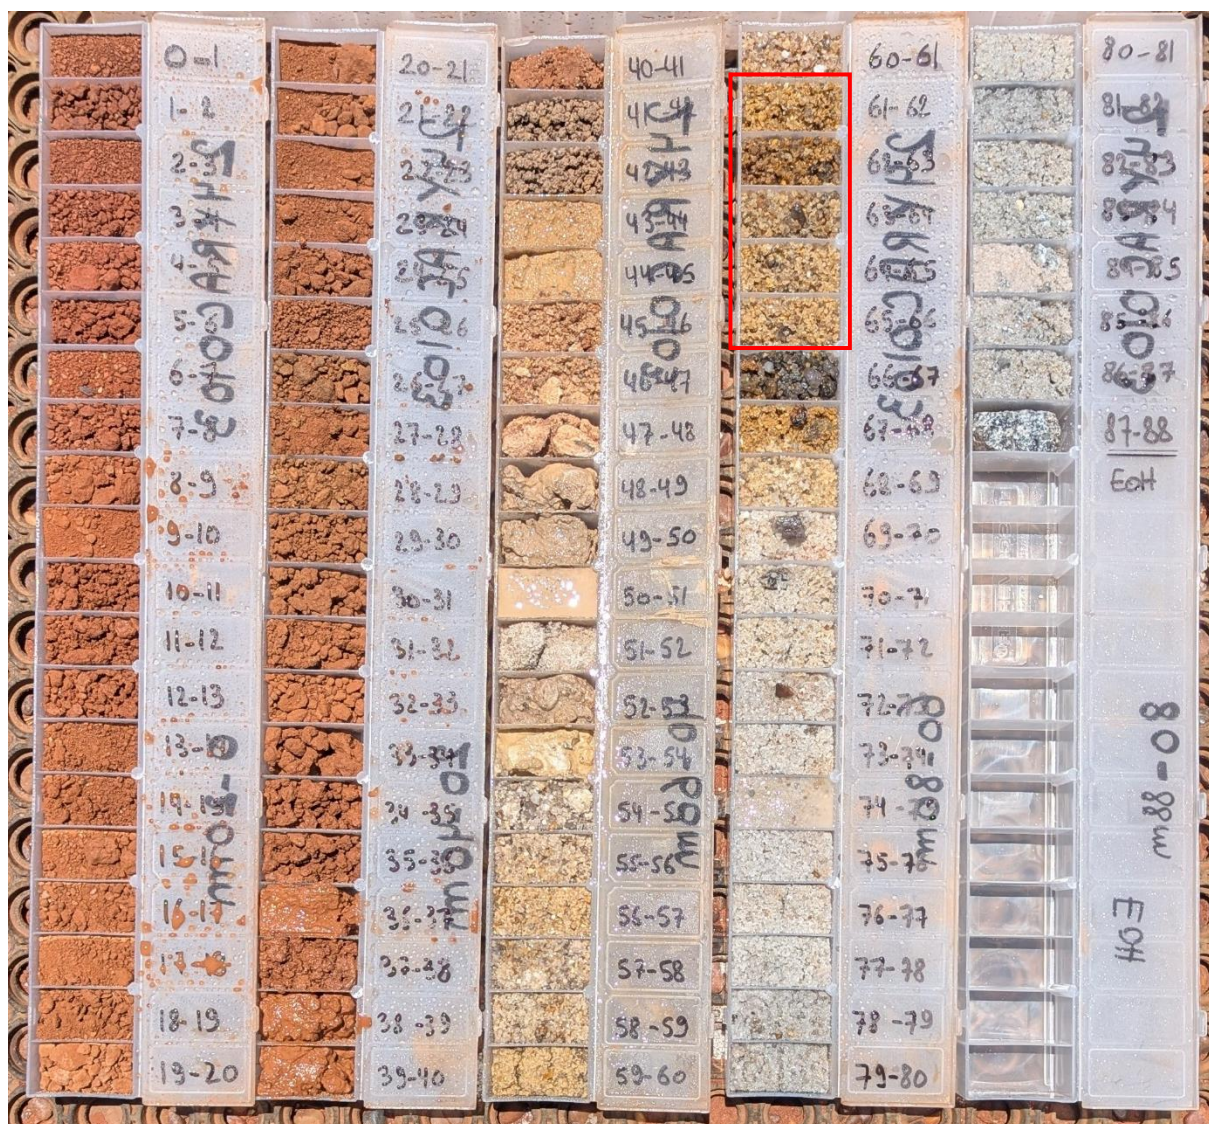 0-1
1-2
2-3
3-4
5-6
6-7
7-8
8-9
9-10
10-11
11-12
12-13
13-14
14-15
15-16
16-17
17-18
18-19
19-20
20-21
21-22
22-23
23-24
24-25
25-26
26-27
27-28
28-29
29-30
30-31
31-32
32-33
33-34
34-35
35-36
36-37
37-38
38-39
39-40
20-40m
40-41
41-42
42-43
43-44
44-45
45-46
46-47
47-48
48-49
49-50
50-51
51-52
52-53
53-54
54-55
55-56
56-57
57-58
58-59
59-60
60-61
61-62
62-63
63-64
64-65
65-66
66-67
67-68
68-69
69-70
70-71
71-72
72-73
73-74
74-75
75-76
76-77
77-78
78-79
79-80
60-80m
80-81
81-82
82-83
83-84
84-85
85-86
86-87
87-88
EOH
80-88m
EOH